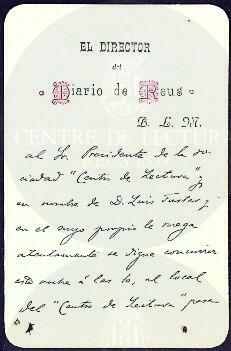 EL DIRECTOR
del
Diario de Reus
B. L. M.
al Sr. Presidente de la so-
ciedad "Centro de Lectura" y
en nombre de D. Luis y
en el suyo propio le ruega
atentamente se digne concurrir
esta noche á las 10, al local
del "Centro de Lectura" para
CENTRE DE LECTURA